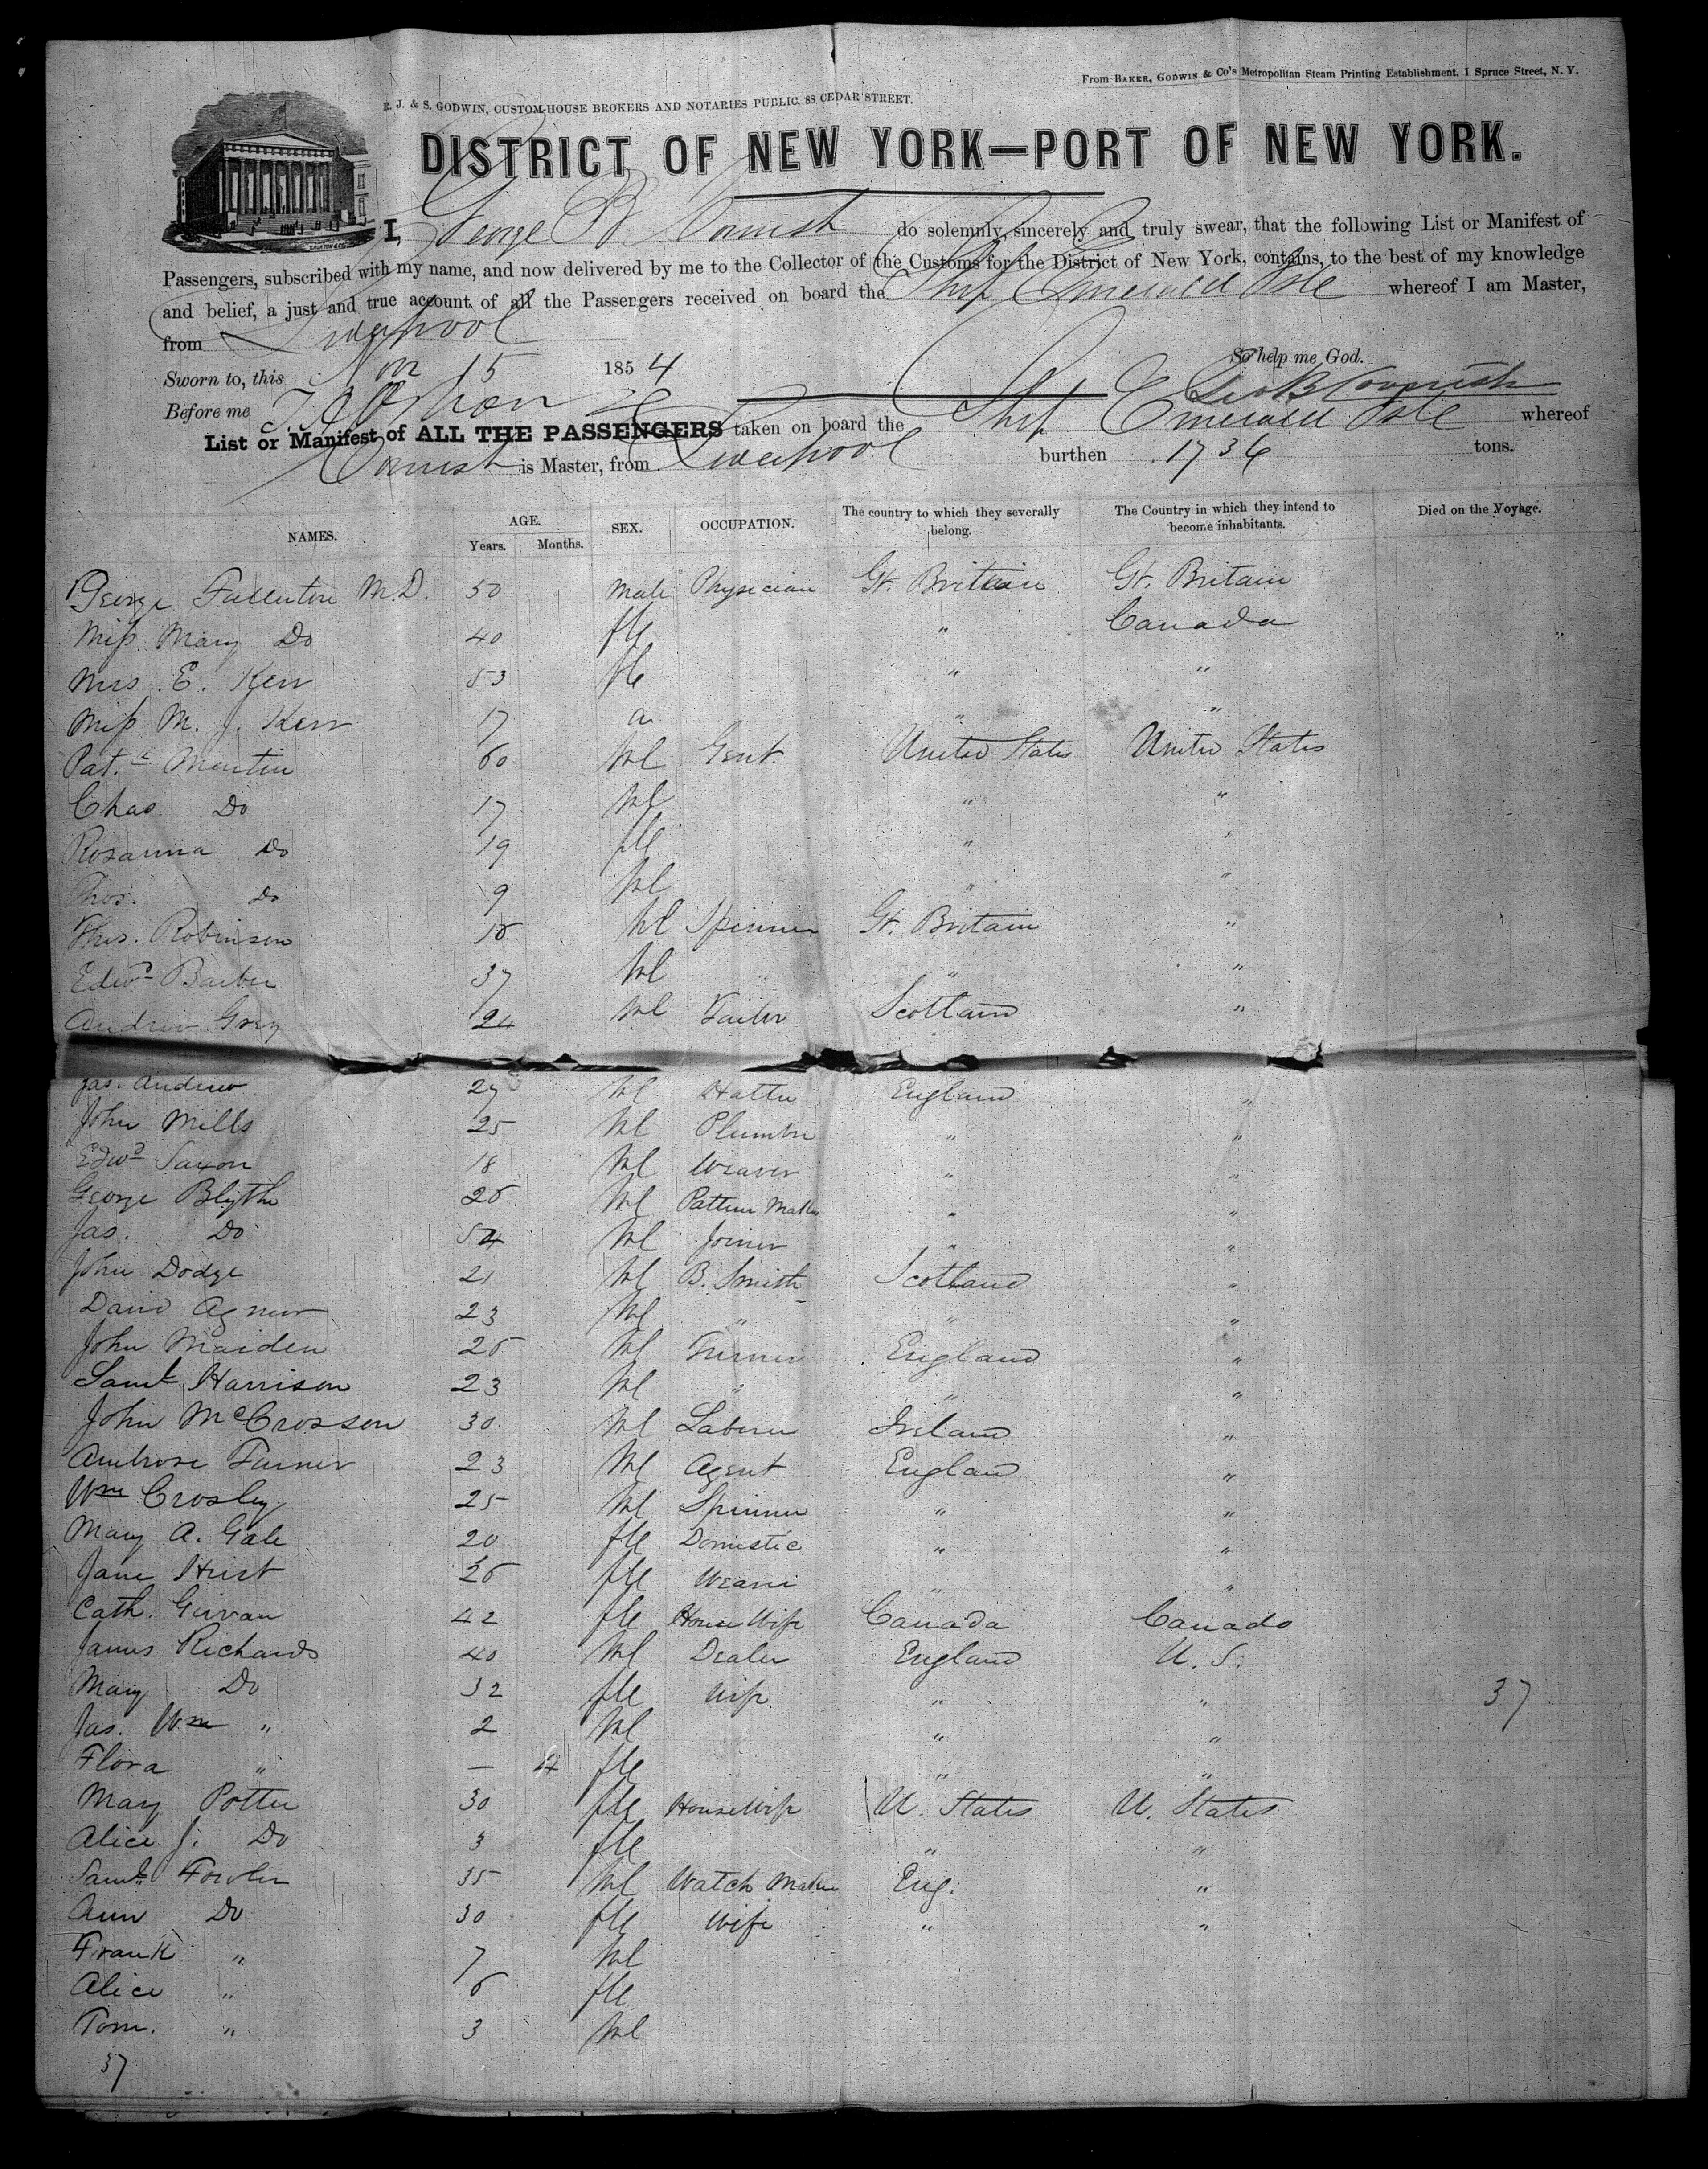 From BAKER, GODWIN & Co's Metropolitan Steam Printing Establishment, 1 Spruce Street, N. Y.
E. J. & S. GODWIN, CUSTOM-HOUSE BROKERS AND NOTARIES PUBLIC, 88 CEDAR STREET.
DISTRICT OF NEW YORK—PORT OF NEW YORK.
I, George B Cornish do solemnly, sincerely and truly swear, that the following List or Manifest of
Passengers, subscribed with my name, and now delivered by me to the Collector of the Customs for the District of New York, contains, to the best of my knowledge
and belief, a just and true account of all the Passengers received on board the Ship Emerald Isle whereof I am Master,
from Liverpool
So help me God.
Sworn to, this Nov 15 1854
Geo B Cornish
Before me
List or Manifest of ALL THE PASSENGERS taken on board the Ship Emerald Isle whereof
Cornish is Master, from Liverpool burthen 1736 tons.
NAMES. AGE. Years. Months. SEX. OCCUPATION. The country to which they severally belong. The Country in which they intend to become inhabitants. Died on the Voyage.
George Fullerton M.D. 50 Male Physician Gt. Britain Gt. Britain
Miss Mary Do 40 fle " Canada
Mrs. E. Kerr 53 fle " "
Miss M. J. Kerr 17 a " "
Pat.k Martin 60 Ml Gent. United States United States
Chas Do 17 Ml " "
Rosanna Do 19 fle " "
Thos. Do 9 Ml " "
Thos. Robinson 18 Ml Spinner Gt. Britain "
Edwd Barber 37 Ml " " "
Andrew Grey 24 Ml Tailor Scotland "
Jas. Andrew 27 Ml Hatter England "
John Mills 25 Ml Plumber " "
Edwd Saxon 18 Ml Weaver " "
George Blythe 26 Ml Pattern Maker " "
Jas. Do 54 Ml Joiner " "
John Dodge 21 Ml B. Smith Scotland "
David Agnew 23 Ml " " "
John Maiden 26 Ml Turner England "
Saml Harrison 23 Ml " " "
John McCrossen 30 Ml Laborer Ireland "
Ambrose Turner 23 Ml Agent England "
Wm Crosley 25 Ml Spinner " "
Mary A. Gale 20 fle Domestic " "
Jane Hirst 26 fle Weaver " "
Cath. Girvan 42 fle House Wife Canada Canada
James Richards 40 Ml Dealer England U. S.
Mary Do 32 fle Wife " " 37
Jas. Wm " 2 Ml " "
Flora " — 4 fle " "
Mary Potter 30 fle HouseWife U. States U. States
Alice J. Do 3 fle " "
Saml Fowler 35 Ml Watch Maker Eng. "
Ann Do 30 fle Wife " "
Frank " 7 Ml
Alice " 6 fle
Tom. " 3 Ml
37